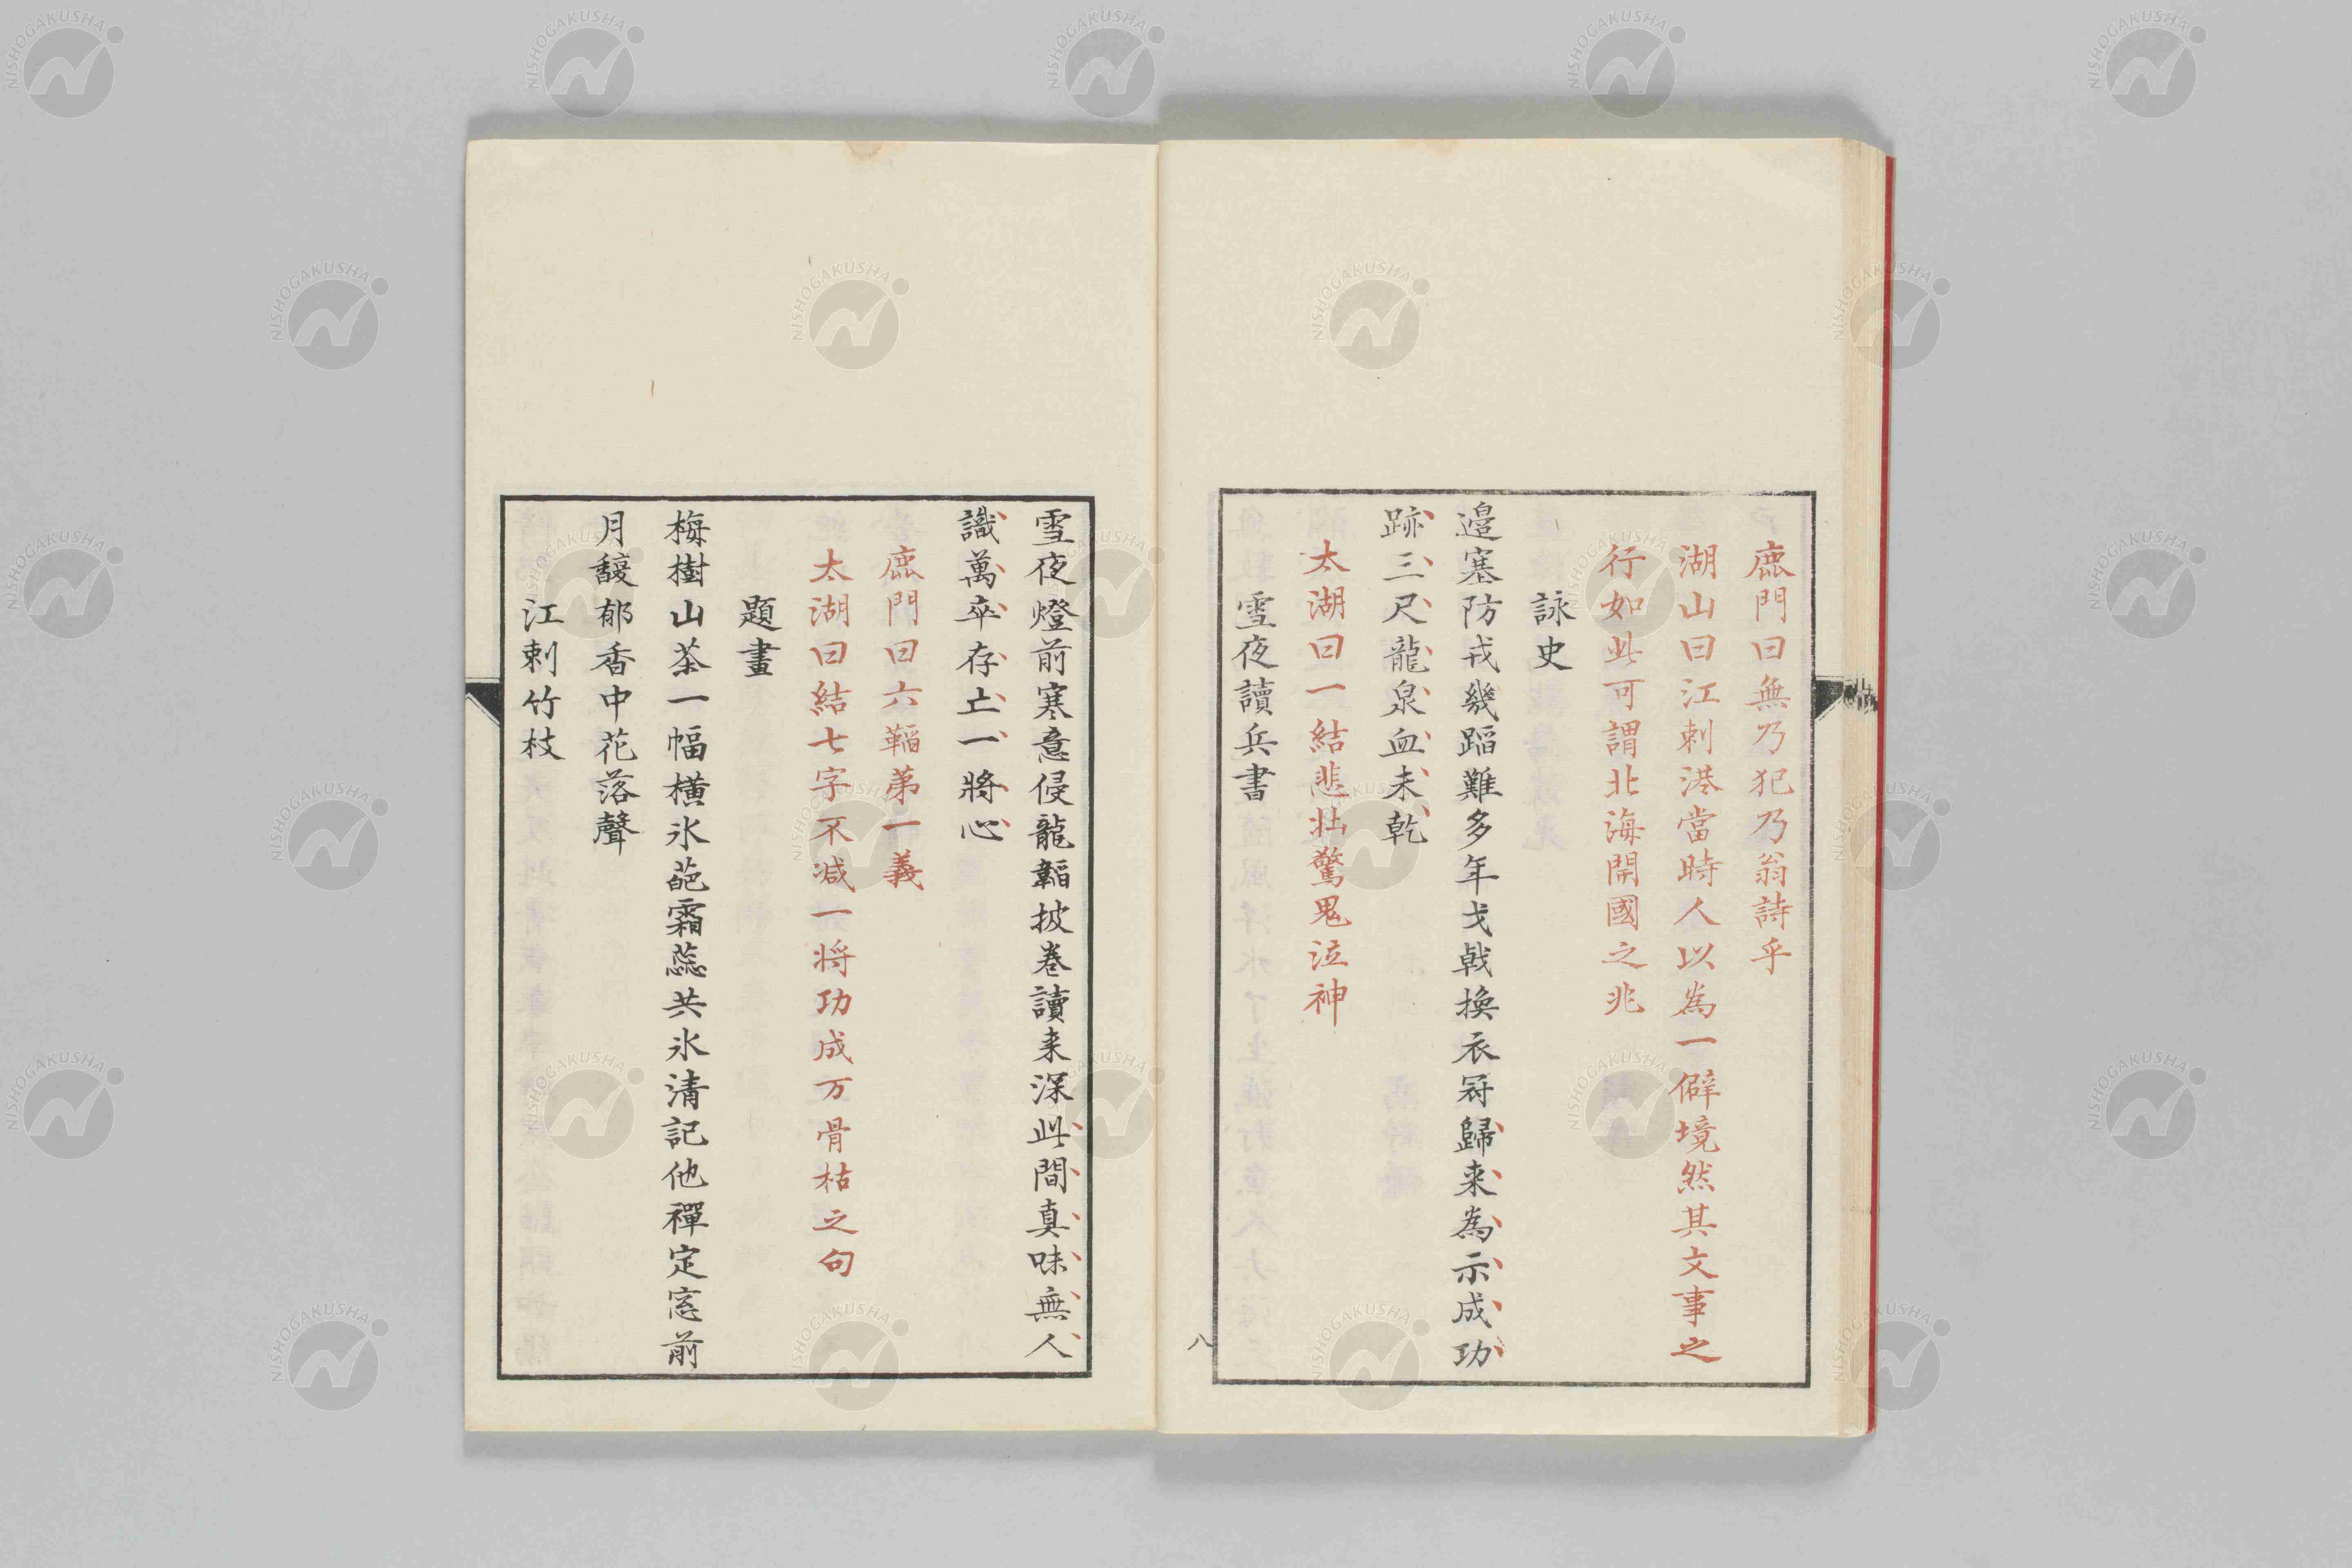 鹿門曰無乃犯乃翁詩乎
湖山曰江刺港當時人以為一僻境然其文事之
行如此可謂北海開國之兆
詠史
邊塞防戎幾蹈難多年戈戟換衣冠歸來為示成功
跡三尺龍泉血未乾
太湖曰一結悲壯驚鬼泣神
雪夜讀兵書
八
雪夜燈前寒意侵龍韜披卷讀来深此間真味無人
識萬卒存亡一將心
鹿門曰六韜第一義
太湖曰結七字不減一將功成万骨枯之句
題畫
梅樹山茶一幅橫氷葩霜蕊共氷清記他禪定窓前
月馥郁香中花落聲
江刺竹枝
NISHOGAKUSHA